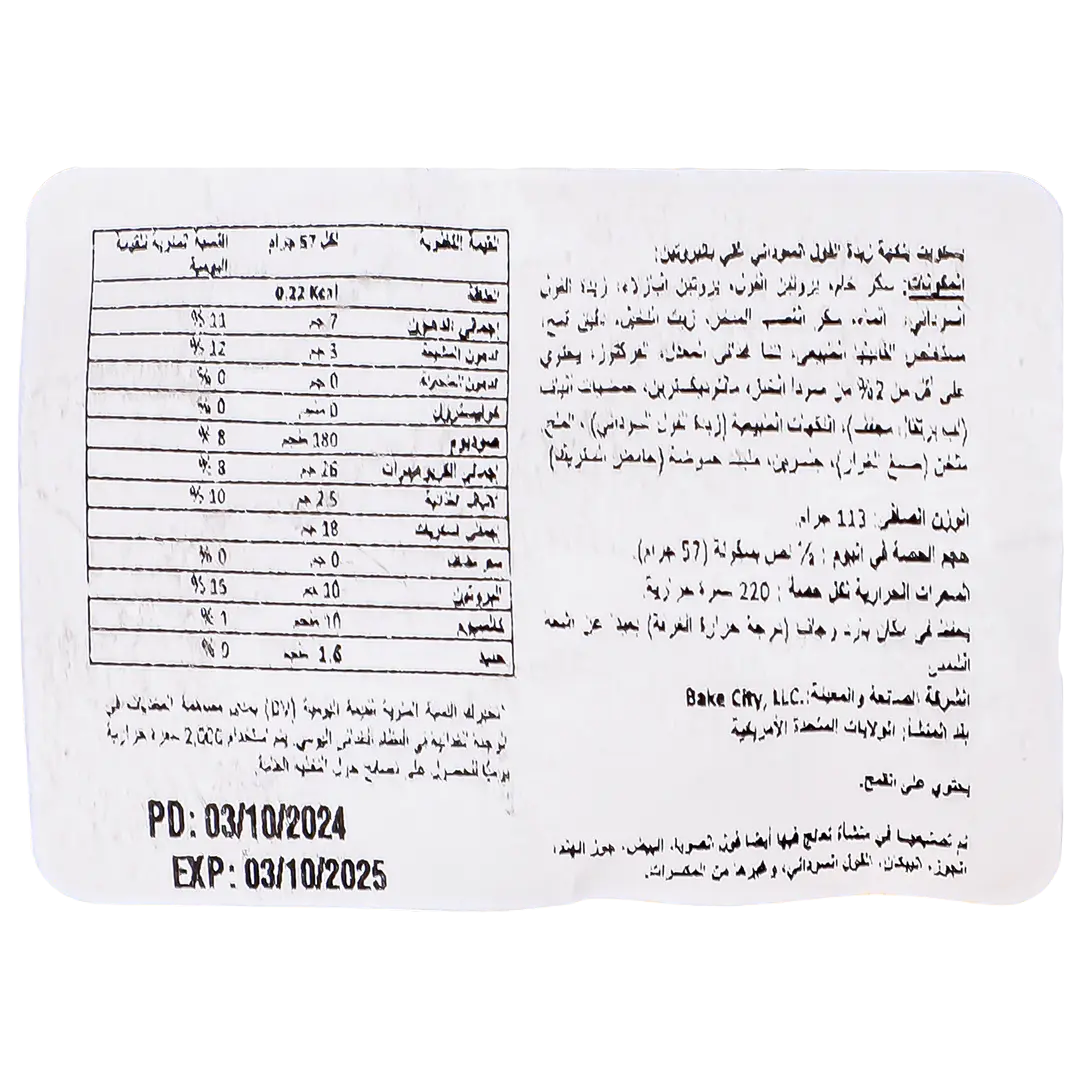 بسكويت بنكهة زبدة الفول السوداني غني بالبروتين:
المكونات: سكر خام، بروتين الفول، بروتين البازلاء، زبدة الفول
السوداني، الماء، سكر القصب المبخر، زيت النخيل، دقيق قمح،
مستخلص الفانيليا الطبيعي، نشا معدل، يحتوي
على أقل من 2% من صودا الخبز، مالتوديكسترين، حمضيات ألياف
(لب برتقال مجفف)، النكهات الطبيعية (زبدة الفول السوداني)، الملح
جلسرين، حموضة (حامض الستريك)
الوزن الصافي: 113 جرام.
حجم الحصة في اليوم: ½ نص بسكوتة (57 جرام).
السعرات الحرارية لكل حصة: 220 سعرة حرارية.
يحفظ في مكان بارد وجاف (درجة حرارة الغرفة) بعيدا عن أشعة
الشمس
الشركة الصنعة والمعبئة: Bake City, LLC.
بلد المنشأ: الولايات المتحدة الأمريكية
يحتوي على القمح.
تم تصنيعها في منشأة تعالج فيها أيضا فول الصويا، البيض، جوز الهند،
الجوز، البيكان، الفول السوداني، وغيرها من المكسرات.
القيمة الغذوية لكل 57 جرام النسبة المئوية للقيمة
اليومية
الطاقة 0.22 Kcal
إجمالي الدهون 7 جم 11 %
الدهون المشبعة 3 جم 12 %
الدهون المتحولة 0 جم 0 %
كوليسترول 0 ملجم 0 %
صوديوم 180 ملجم 8 %
إجمالي الكربوهيدرات 26 جم 8 %
الألياف الغذائية 2.5 جم 10 %
إجمالي السكريات 18 جم
سكر مضاف 0 جم 0 %
البروتين 10 جم 15 %
كالسيوم 10 ملجم 1 %
حديد 1.6 ملجم 0 %
النسبة المئوية للقيمة اليومية (DV) مساهمة المغذيات في
الوجبة الغذائية في النظام الغذائي اليومي. يتم استخدام 2,000 سعرة حرارية
يوميًا للحصول على نصائح حول التغذية العامة.
PD: 03/10/2024
EXP: 03/10/2025